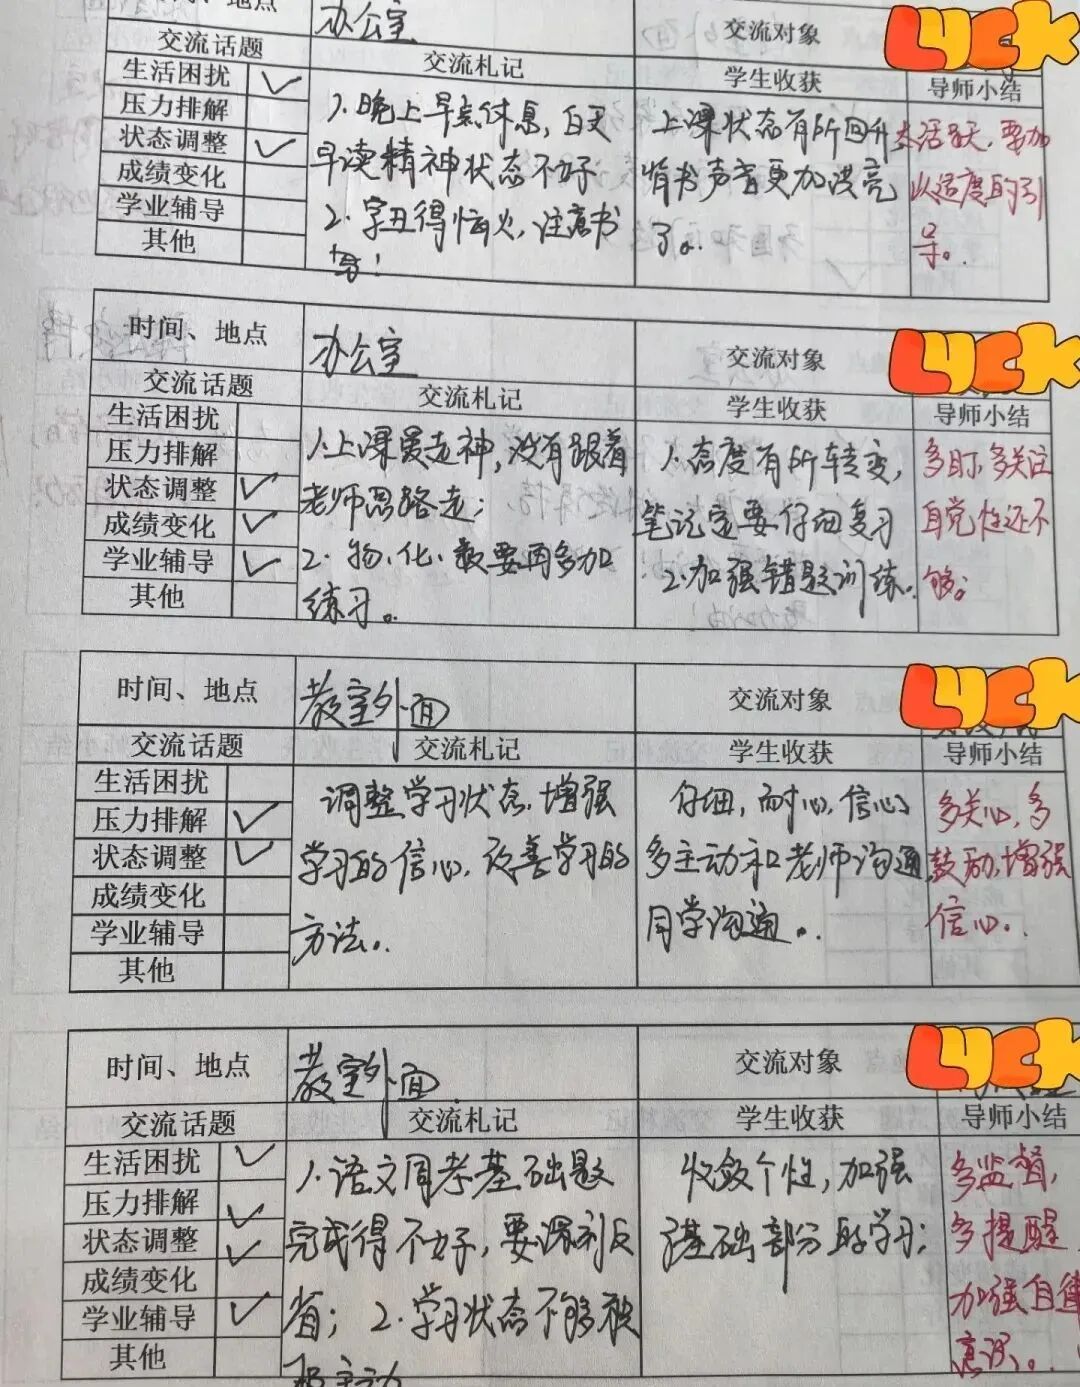 时间、地点 办公室 交流对象 LUCK
交流话题 交流札记 学生收获 导师小结
生活困扰 ✓
压力排解
状态调整 ✓
成绩变化
学业辅导
其他
1.晚上早点休息,白天
早读精神状态不好
2.字丑得恼火,注意书
写!
上课状态有所回升
背书声音更加洪亮
了。
太活跃,要加
以适度的引
导。
时间、地点 办公室 交流对象 LUCK
交流话题 交流札记 学生收获 导师小结
生活困扰
压力排解
状态调整 ✓
成绩变化 ✓
学业辅导 ✓
其他
1.上课爱走神,没有跟着
老师思路走;
2.物、化、数要再多加
练习。
1.态度有所转变,
笔记定要仔细复习
2.加强错题训练。
多盯,多关注
自觉性还不
够。
时间、地点 教室外面 交流对象 LUCK
交流话题 交流札记 学生收获 导师小结
生活困扰
压力排解 ✓
状态调整 ✓
成绩变化
学业辅导
其他
调整学习状态,增强
学习的信心,改善学习的
方法。
仔细,耐心,信心
多主动和老师沟通
同学沟通。
多关心,多
鼓励,增强
信心。
时间、地点 教室外面 交流对象 LUCK
交流话题 交流札记 学生收获 导师小结
生活困扰 ✓
压力排解 ✓
状态调整 ✓
成绩变化
学业辅导 ✓
其他
1.语文周考基础题
完成得不好,要深刻反
省;2.学习状态不够积
极主动
收敛个性,加强
基础部分的学习;
多监督,
多提醒
加强自律
意识。